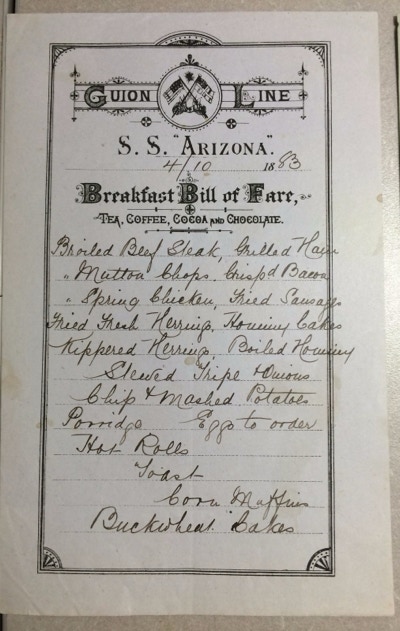 GUION LINE
S. S. "ARIZONA".
4/10 1883
Breakfast Bill of Fare,
TEA, COFFEE, COCOA AND CHOCOLATE.
Broiled Beef Steak, Grilled Ham
" Mutton Chops. Crisp'd Bacon
" Spring Chicken, Fried Sausages
Fried Fresh Herrings, Hominy Cakes
Kippered Herrings, Boiled Hominy
Stewed Tripe & Onions
Chip & Mashed Potatoes
Porridge Eggs to order
Hot Rolls
Toast
Corn Muffins
Buckwheat Cakes